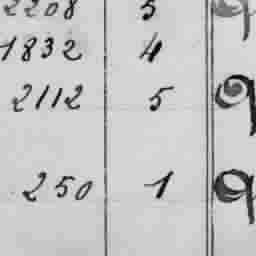 2208 5
1832 4
2112 5 9
250 1 9